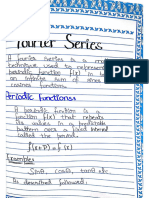 Fourier Series
A fourier series is a
technique used to represent
periodic function f(x) in
an infinite sum of sines
cosines functions.
Periodic Functions
A periodic function is a
function f(x) that repeats
its values in a
pattern over a fixed interval
called the period.
f(x+P) = f(x)
Examples
Sinθ, cosθ, tanθ etc